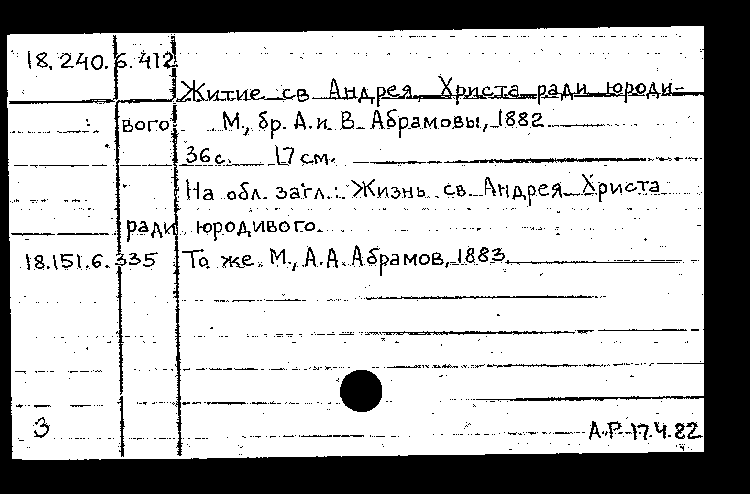 18.240.6.412
Житие св Андрея, Христа ради юроди-
вого. М., бр. А. и В. Абрамовы, 1882
36 с. 17 см.
На обл. загл.: Жизнь св. Андрея Христа
ради юродивого.
18.151.6.335 То же. М., А.А. Абрамов, 1883.
3 А.Р. 17.4.82